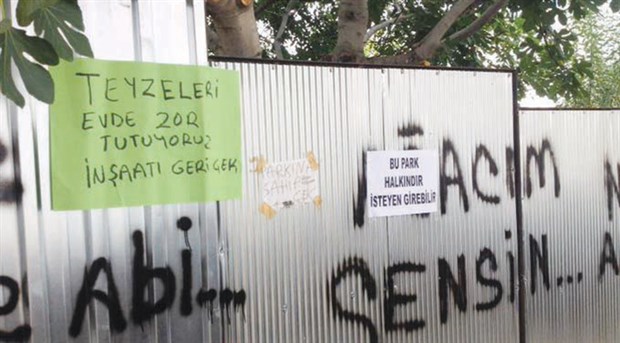 TEYZELERİ
EVDE ZOR
TUTUYORUZ
İNŞAATI GERİ ÇEK
PARKINA
SAHİP
BU PARK
HALKINDIR
İSTEYEN GİREBİLİR
ACIM
Abi...
SENSİN... A